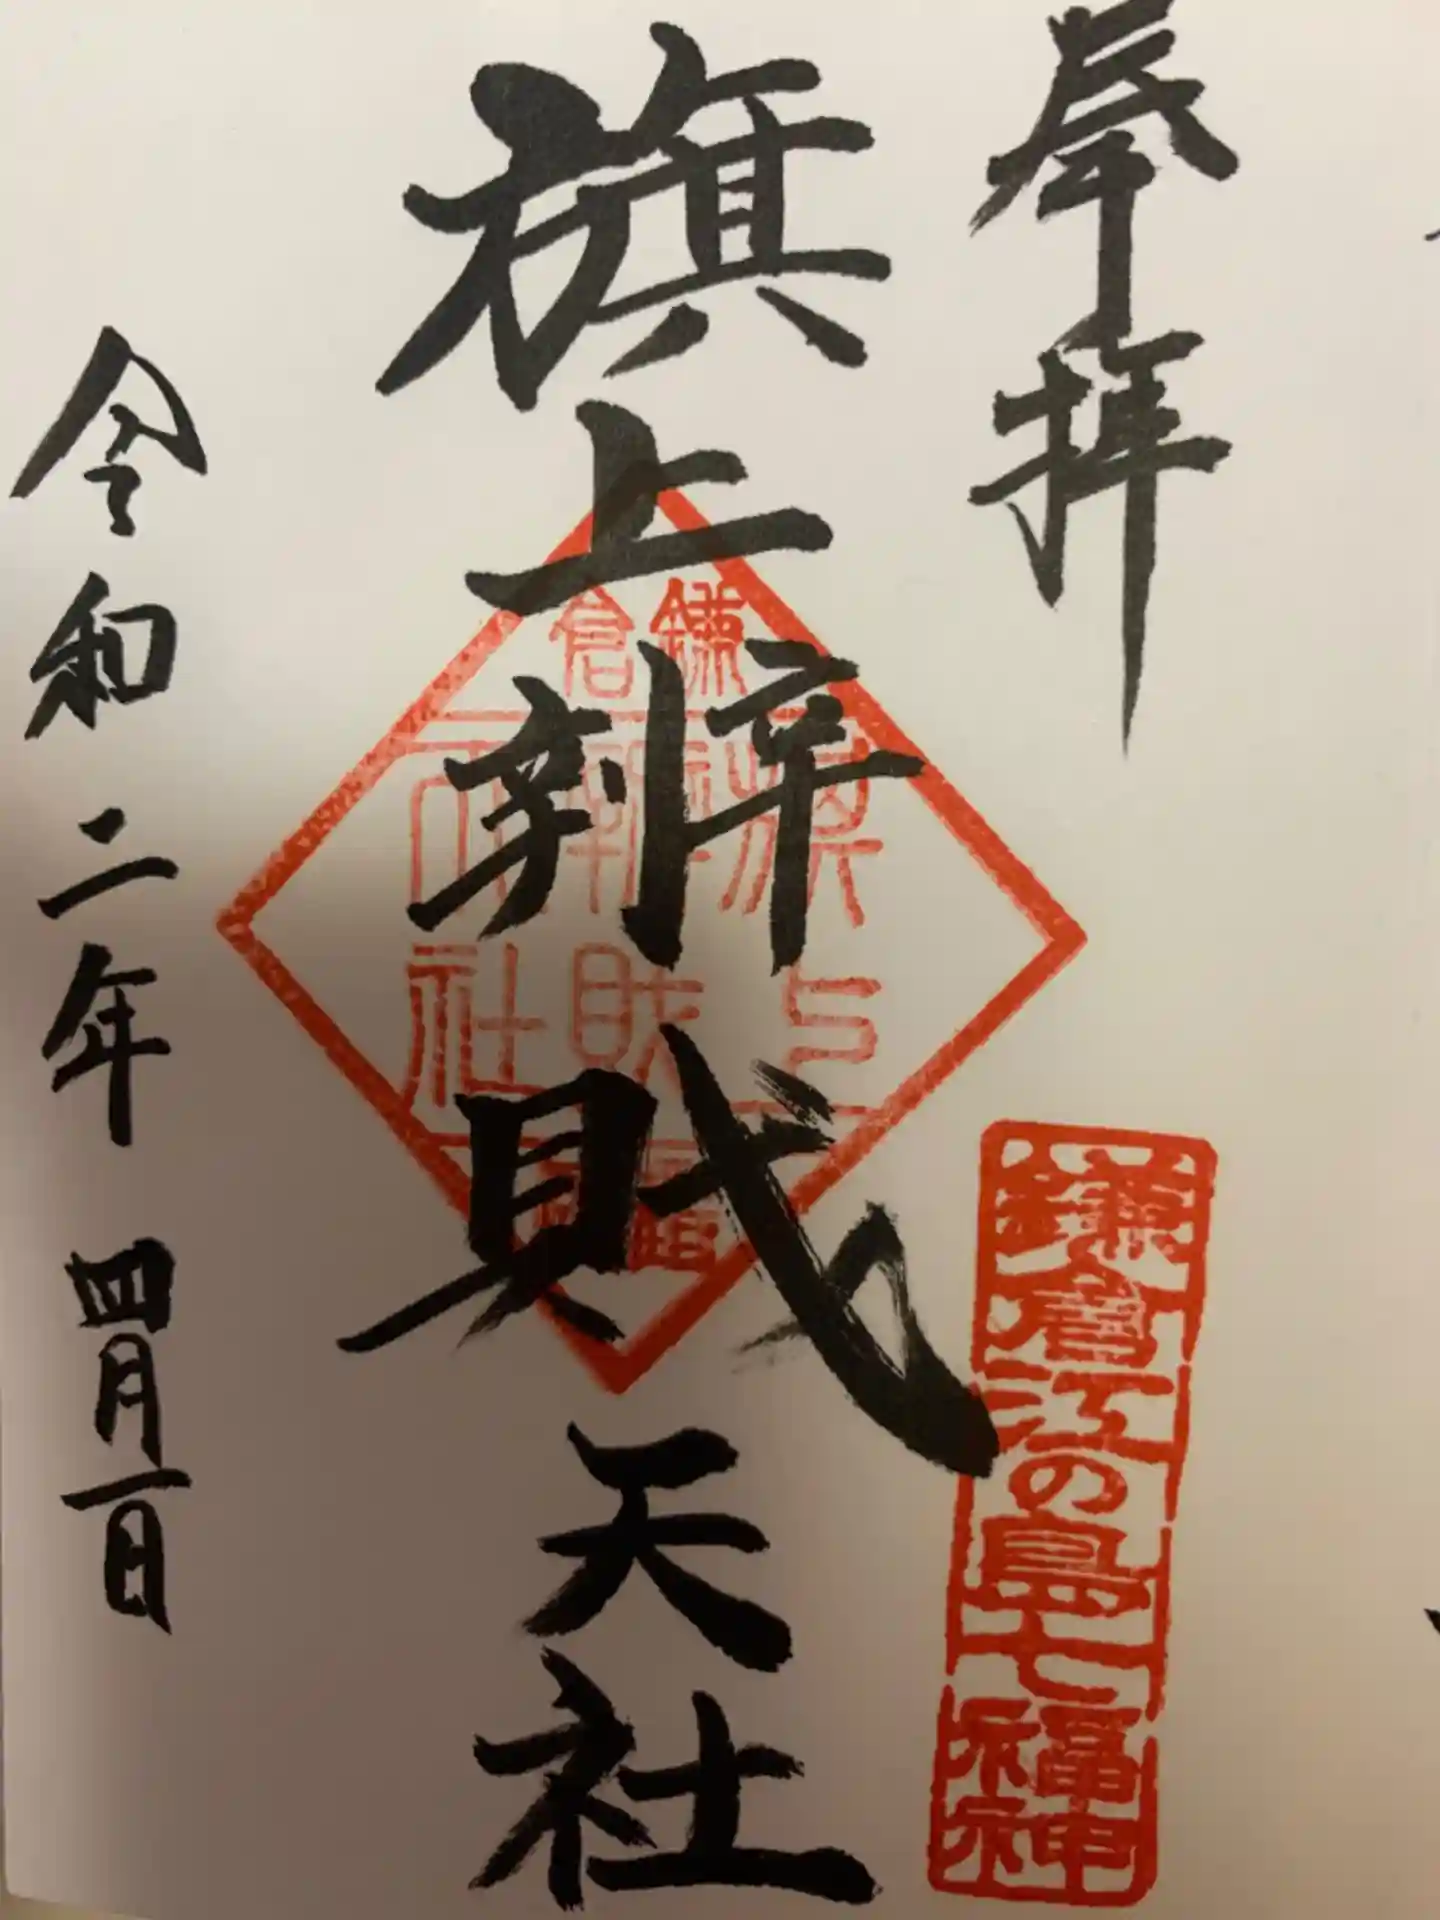 奉拝
鎌倉江の島七福神
旗上辨財天社
鎌倉
旗上
辨財
天社
令和二年 四月一日